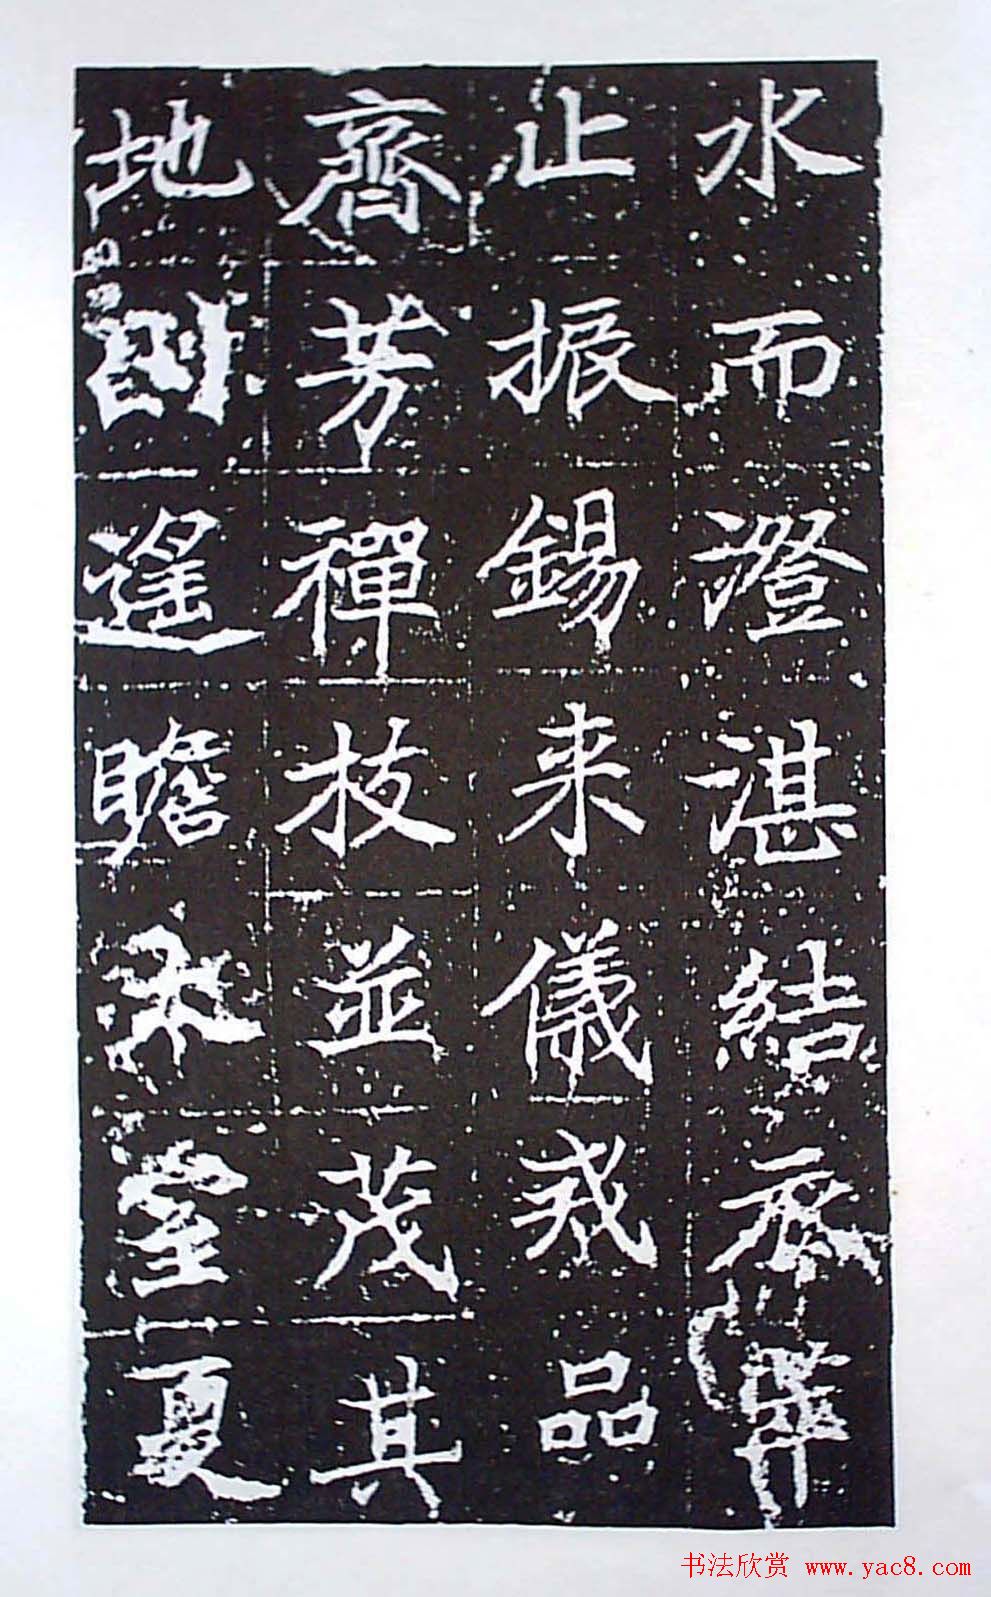 水而澄湛結衣
止振錫来儀戒品
齊芳禪枝並茂其
地遥瞻室夏
书法欣赏 www.yac8.com